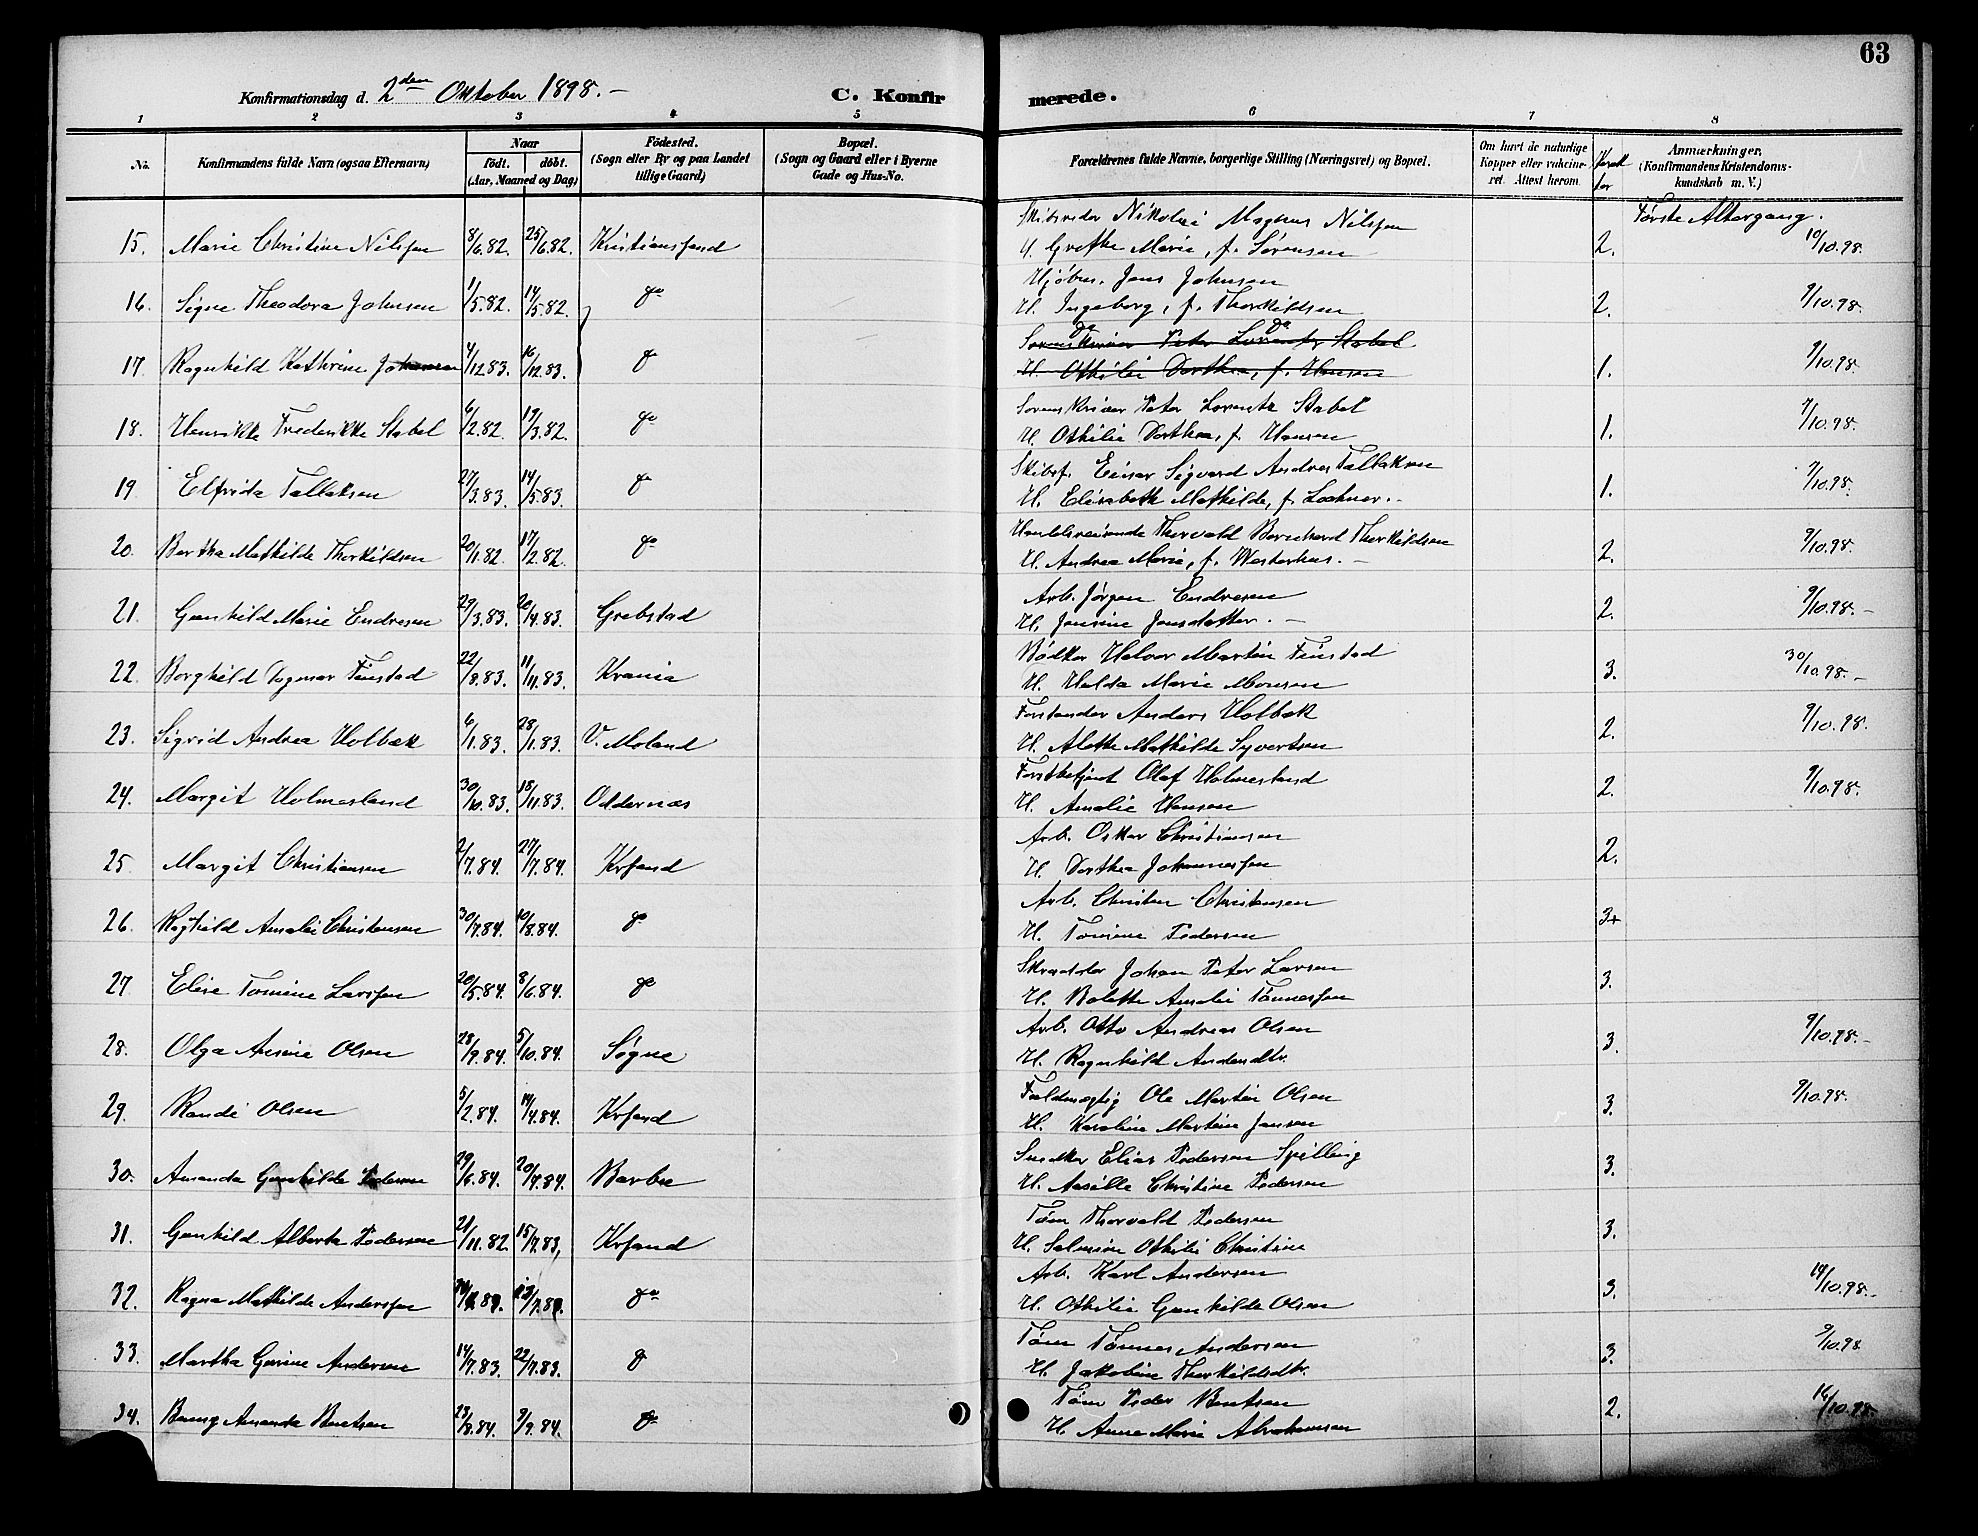 63
Konfirmationsdag d. 2den Oktober 1898. – C. Konfirmerede.
1 2 3 4 5 6 7 8
No. Konfirmandens fulde Navn (ogsaa Efternavn) Naar födt. döbt. (Aar, Maaned og Dag) Födested. (Sogn eller By og paa Landet tillige Gaard) Bopæl. (Sogn og Gaard eller i Byerne Gade og Hus-No. Forældrenes fulde Navne, borgerlige Stilling (Næringsvei) og Bopæl. Om havt de naturlige Kopper eller vakcineret. Attest herom. Karakter Anmærkninger, (Konfirmandens Kristendomskundskab m. V.)
Første Altergang.
15. Marie Christine Nilssen 8/6.82. 25/6.82. Kristianssand Skibsreder Nikolai Magnus Nilssen
H. Grethe Marie, f. Sørensen 2. 10/10.98.
16. Signe Theodora Johnsen 1/5.82. 14/5.82. do Kjøbm. Jens Johnsen
H. Ingeborg, f. Thorkildsen 2. 9/10.98.
17. Ragnhild Kathrine Johnsen 4/12.83. 16/12.83. do do do
Sorenskriver Peter Lorentz Stabel
H. Othilie Dorthea, f. Hansen 1. 9/10.98.
18. Henrikke Frederikke Stabel 6/2.82. 19/3.82. do Sorenskriver Peter Lorentz Stabel
H. Othilie Dorthea, f. Hansen 1. 9/10.98.
19 Elfrida Tallaksen 27/3.83. 14/5.83. do Skibsf. Einar Sigvard Andreas Tallaksen
H. Elisabeth Mathilde, f. Lochner. – 1. 9/10.98.
20. Bertha Mathilde Thorkildsen 20/1.82. 17/2.82. do Handelsreisende Thorvald Bernhard Thorkildsen
H. Andrea Marie, f. Westerhus. – 2. 9/10.98.
21. Gunhild Marie Endresen 29/3.83. 20/4.83. Grebstad Arb. Jørgen Endresen
H. Jensine Jensdatter. – 2. 9/10.98. –
22. Borghild Dagmar Finstad 22/8.83. 11/11.83. Krania Bødker Halvor Martin Finstad
H. Hulda Marie Monsen 3. 30/10.98. –
23. Sigrid Andrea Holbæk 6/1.83. 28/1.83. V. Moland Forstander Anders Holbæk
H. Alette Mathilde Syvertsen 2. 9/10.98.
24. Margit Holmesland 30/10.83. 18/11.83. Oddernæs Forstbetjent Olaf Holmesland
H. Amalie Hansen 2. 9/10.98.
25 Margit Christiansen 2/7.84. 27/7.84. Krsand Arb. Oskar Christiansen
H. Dorthea Johannessen 2.
26. Raghild Amalie Christensen 30/7.84. 10/8.84. do Arb. Christen Christensen
H. Tomine Pedersen 3+
27. Elise Tomine Larssen 20/5.84. 8/6.84. do Skrædder Johan Peter Larsen
H. Bolette Amalie Tønnessen 3.
28. Olga Ansine Olsen 28/9.84. 5/10.84. Søgne Arb. Otto Andreas Olsen
H. Ragnhild Andersdtr. 3. 9/10.98. –
29. Randi Olsen 5/2.84. 14/4.84. Krsand Fuldmægtig Ole Martin Olsen
H. Karoline Martine Jensen 3. 9/10.98.
30. Amanda Gunhilde Pedersen 29/6.84. 20/7.84. Barbu Snedker Elias Pedersen Spilling
H. Aasille Christine Pedersen 3.
31. Gunhild Alberta Pedersen 21/11.82 15/7.83, Krsand Tøm Thorvald Pedersen
H. Salmine Othilie Christine 3.
32. Ragna Mathilde Anderssen do Arb. Karl Andersen
H. Othilie Gunhilde Olsen 3. 14/10.98. –
33. Martha Gurine Andersen 14/7.83. 22/7.83. do Tøm Tønnes Andersen
H. Jakobine Thorkildsdtr. 3. 9/10.98
34. Amanda Bentsen 23/8.84. 9/9.84. do Tøm Peder Bentsen
H. Anne Marie Abrahamsen 2. 16/10.98.